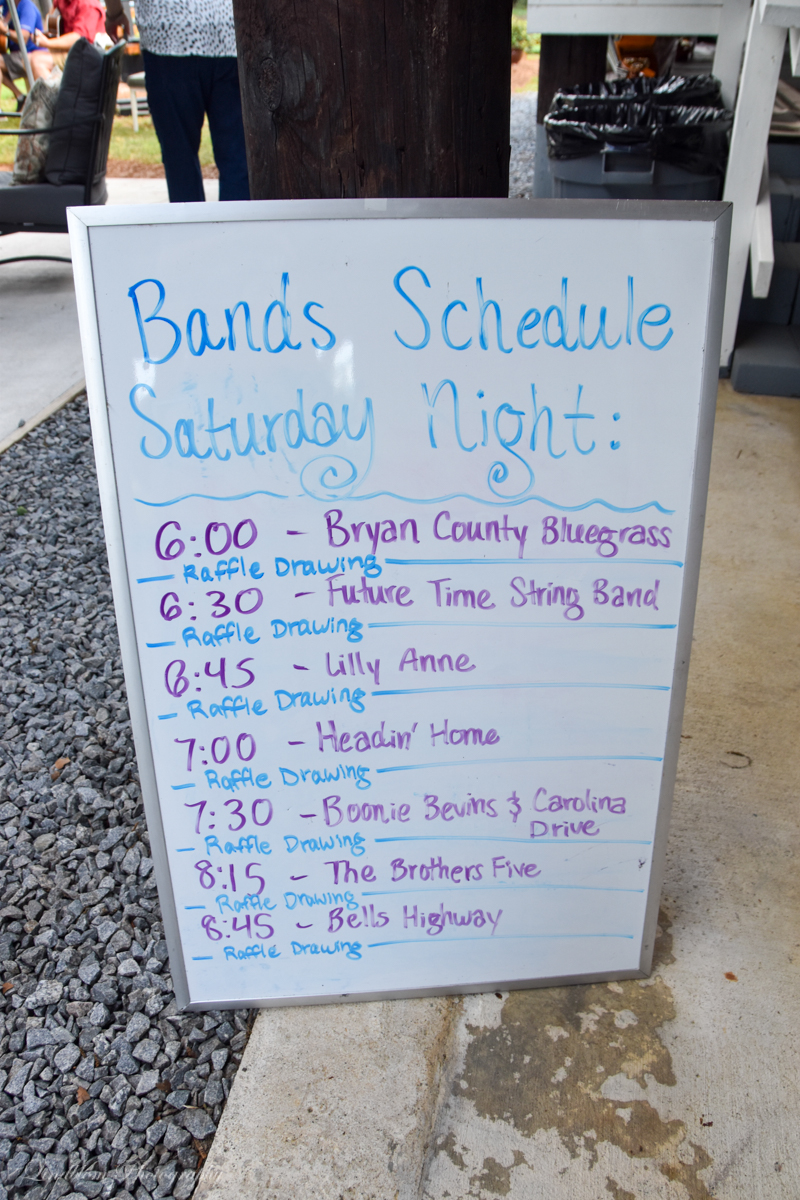 Bands Schedule
Saturday Night:
6:00 - Bryan County Bluegrass
- Raffle Drawing
6:30 - Future Time String Band
- Raffle Drawing
6:45 - Lilly Anne
- Raffle Drawing
7:00 - Headin' Home
- Raffle Drawing
7:30 - Boonie Bevins & Carolina
Drive
- Raffle Drawing
8:15 - The Brothers Five
- Raffle Drawing
8:45 - Bells Highway
- Raffle Drawing
Lindblom Photography